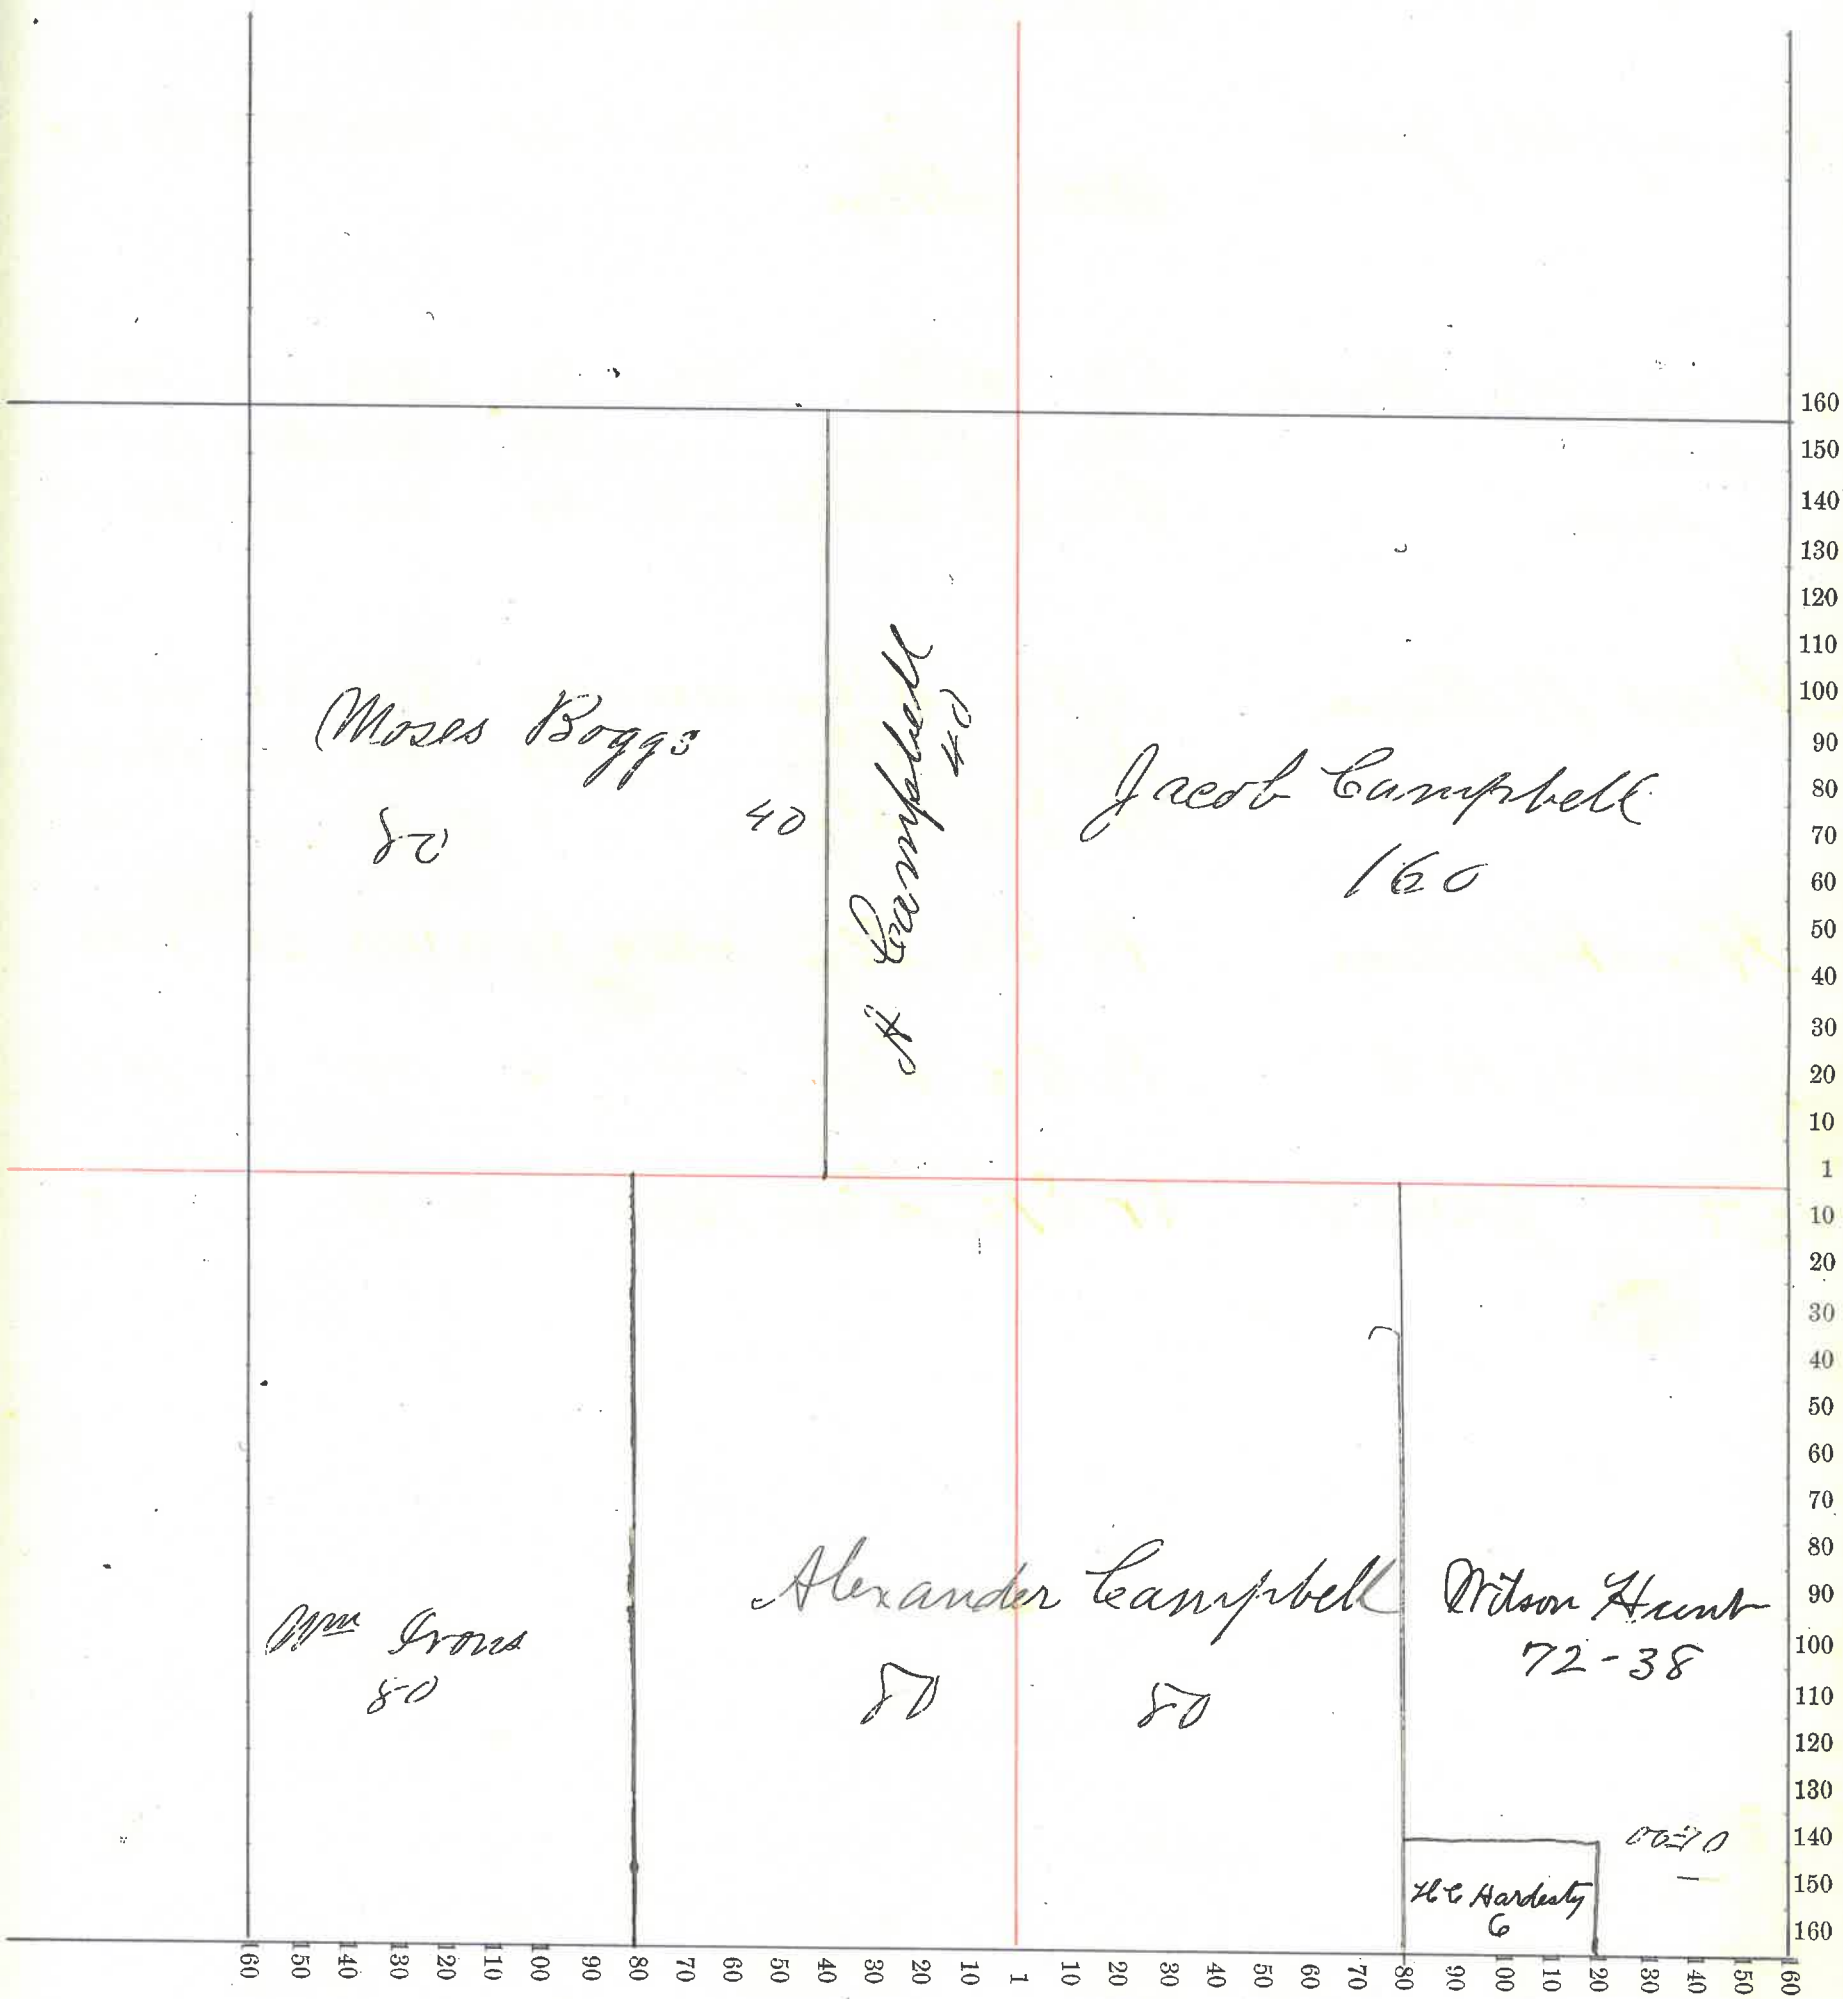 Moses Boggs
80
40
A Campbell
40
Jacob Campbell
160
Wm Irons
80
Alexander Campbell
80
80
Wilson Hunt
72-38
H C Hardesty
6
160
150
140
130
120
110
100
90
80
70
60
50
40
30
20
10
1
10
20
30
40
50
60
70
80
90
100
110
120
130
140
150
160
160
150
140
130
120
110
100
90
80
70
60
50
40
30
20
10
1
10
20
30
40
50
60
70
80
90
100
110
120
130
140
150
160